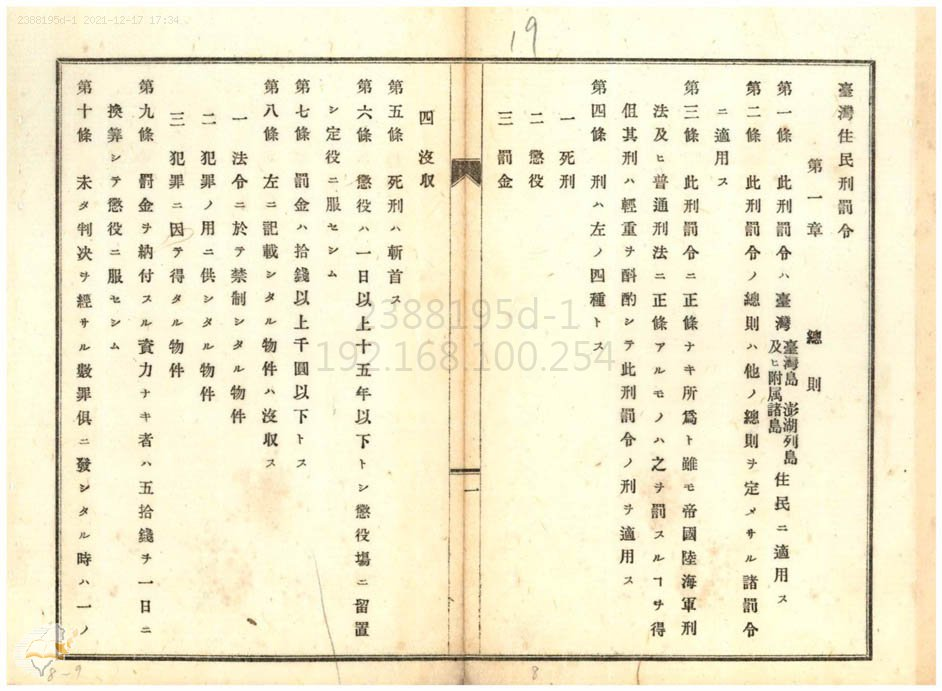 2388195d-1 2021-12-17 17:34
19
臺灣住民刑罰令
第一章 總則
第一條 此刑罰令ハ臺灣 臺灣島 澎湖列島 及ヒ附屬諸島 住民ニ適用ス
第二條 此刑罰令ノ總則ハ他ノ總則ヲ定メサル諸罰令
ニ適用ス
第三條 此刑罰令ニ正條ナキ所爲ト雖モ帝國陸海軍刑
法及ヒ普通刑法ニ正條アルモノハ之ヲ罰スルヿヲ得
但其刑ハ輕重ヲ斟酌シテ此刑罰令ノ刑ヲ適用ス
第四條 刑ハ左ノ四種トス
一 死刑
二 懲役
三 罰金
一
四 沒収
第五條 死刑ハ斬首ス
第六條 懲役ハ一日以上十五年以下トシ懲役場ニ留置
シ定役ニ服セシム
第七條 罰金ハ拾錢以上千圓以下トス
第八條 左ニ記載シタル物件ハ沒収ス
一 法令ニ於テ禁制シタル物件
二 犯罪ノ用ニ供シタル物件
三 犯罪ニ因テ得タル物件
第九條 罰金ヲ納付スル資力ナキ者ハ五拾錢ヲ一日ニ
換算シテ懲役ニ服セシム
第十條 未タ判决ヲ經サル數罪俱ニ發シタル時ハ一ノ
2388195d-1
192.168.100.254
8-9
8